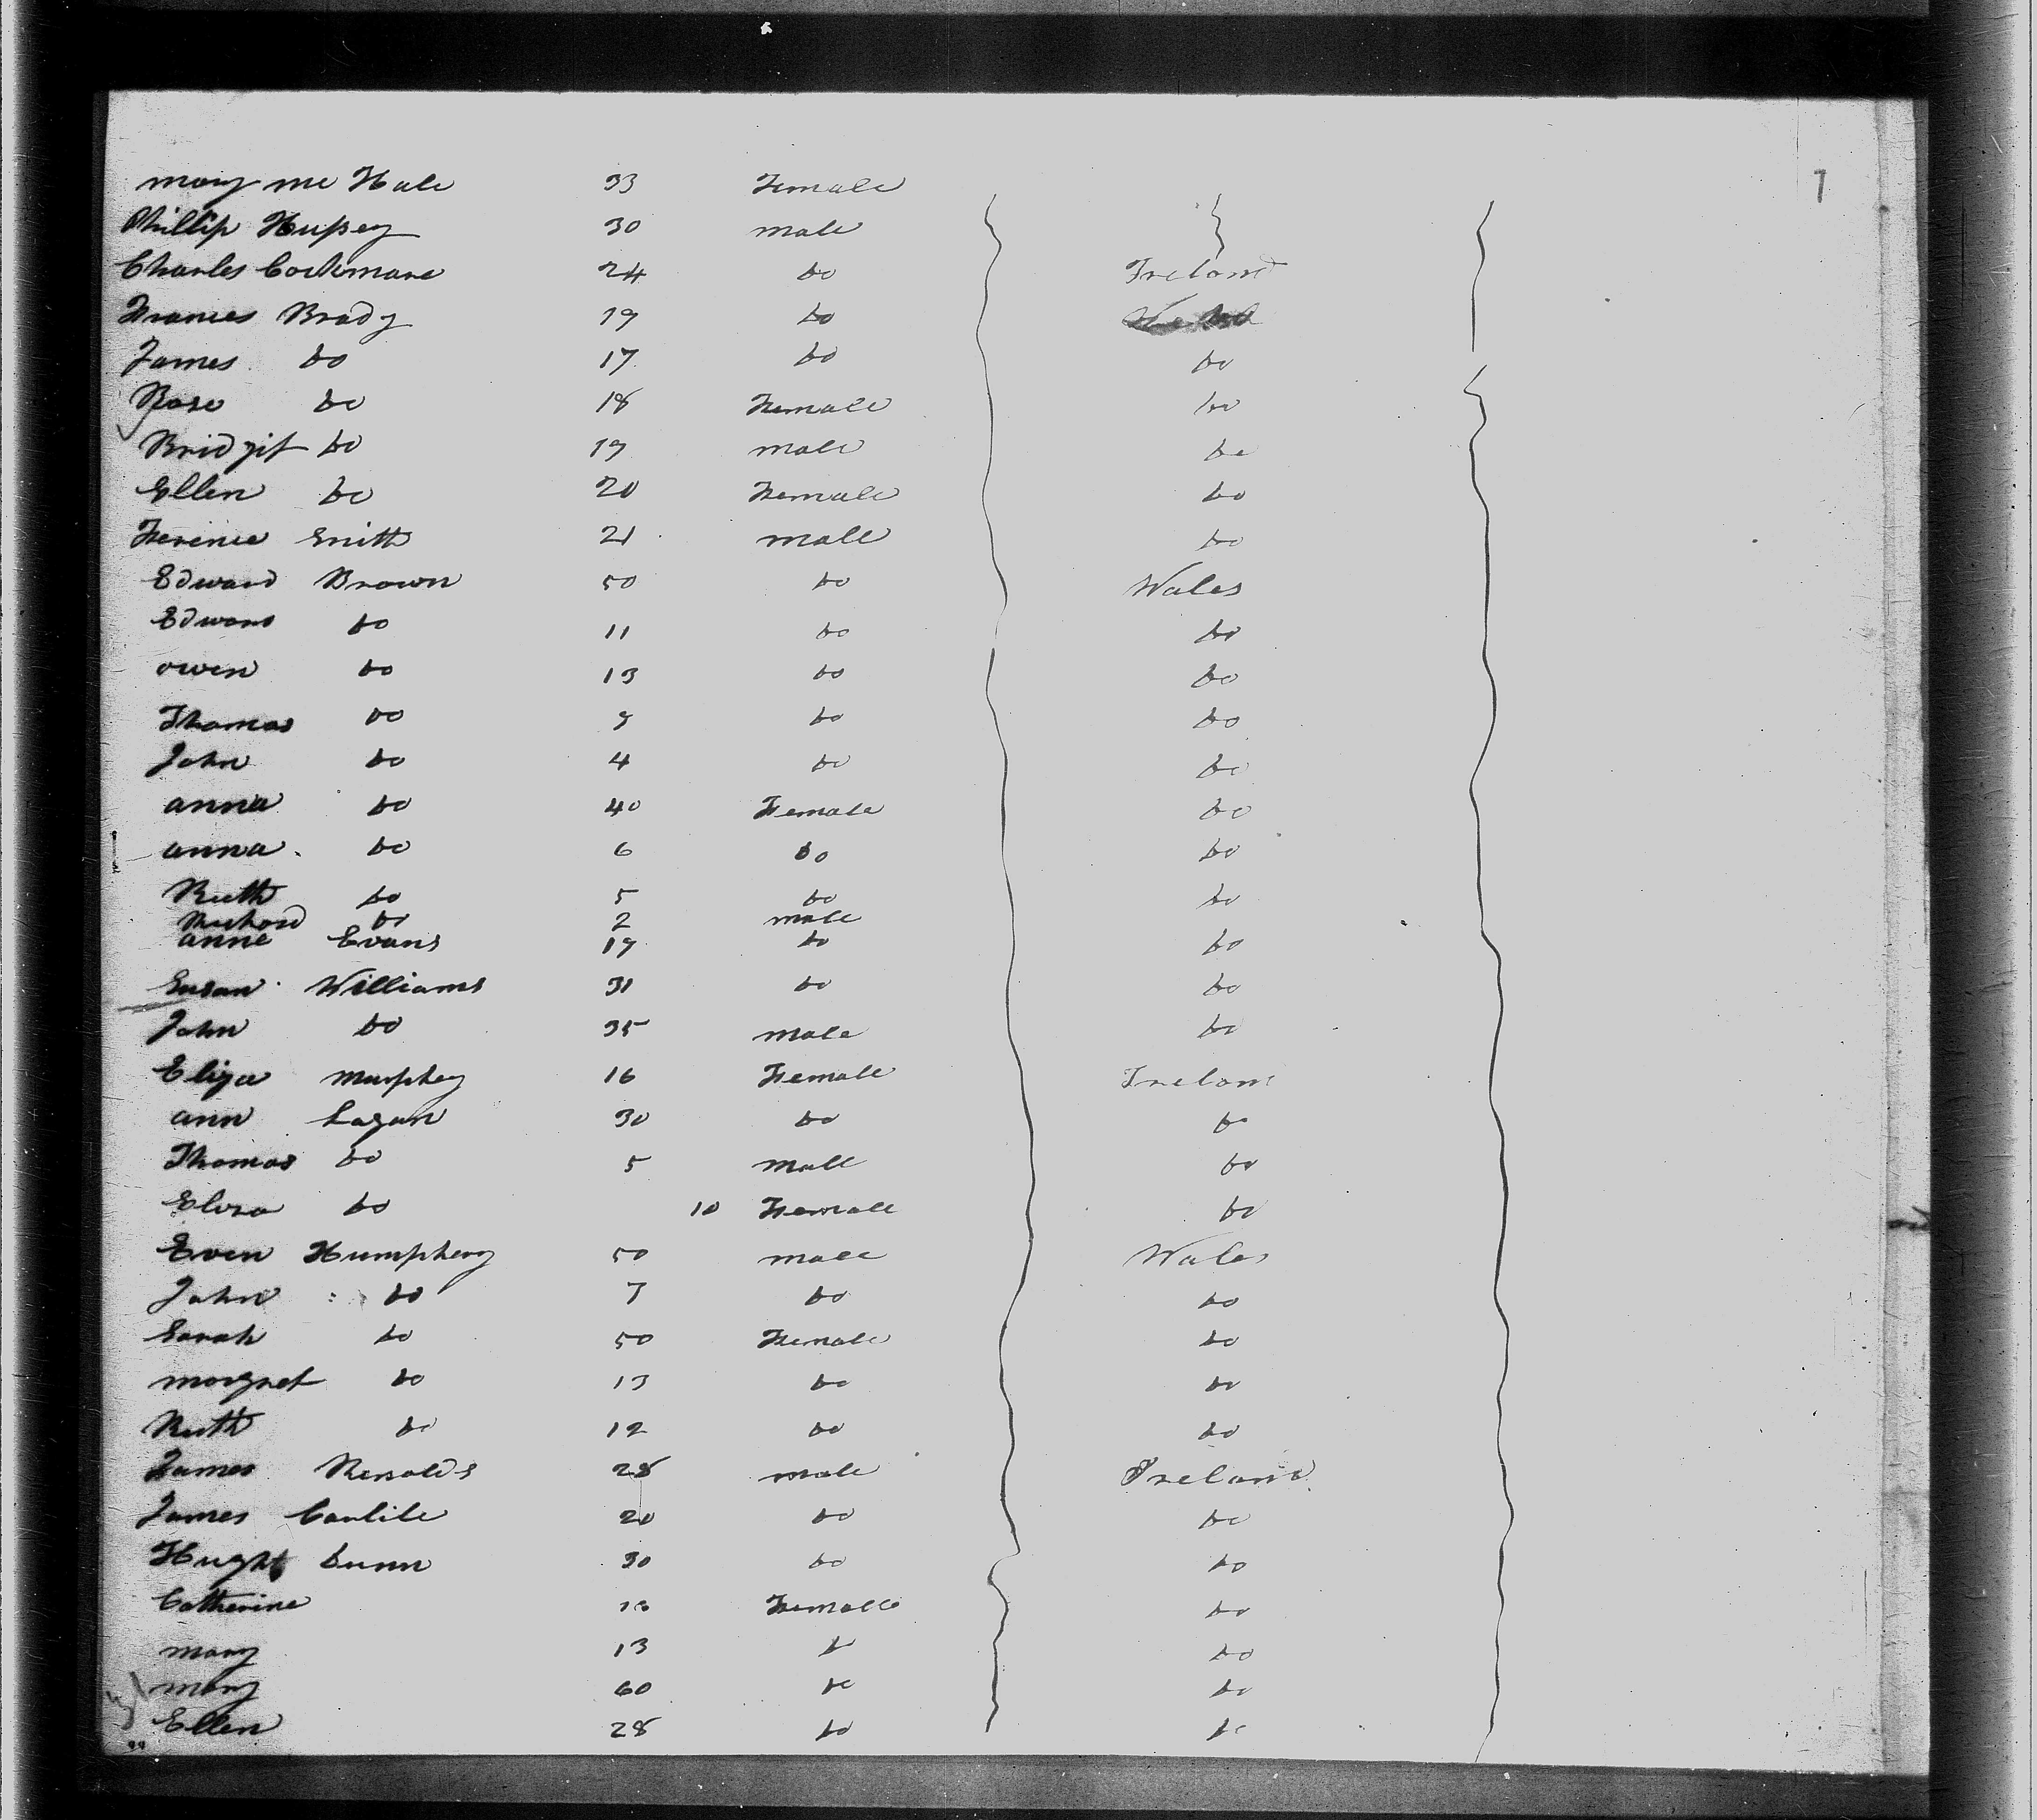 7
mary mc Hale 33 Female
Phillip Hussey 30 male
Charles 24 do Ireland
Frances Brady 19 do
James do 17 do do
Rose do 18 Female do
Bridgit do 19 male do
Ellen do 20 Female do
Smith 21 male do
Edward Brown 50 do Wales
Edward do 11 do do
owen do 13 do do
Thomas do 9 do do
John do 4 do do
anna do 40 Female do
anna do 6 do do
Ruth do 5 do do
Richard do 2 male
anne Evans 19 do do
Susan Williams 31 do do
John do 35 male do
Eliza Murphey 16 Female Ireland
ann Lagan 30 do do
Thomas do 5 male do
Eliza do 10 Female do
Even Humphery 50 male Wales
John do 7 do do
Sarah do 50 Female do
margret do 13 do do
Ruth do 12 do do
James Renolds 28 male Ireland
James Carlile 20 do do
Hught Lunn 30 do do
Catherine Female do
mary 13 do do
mary 60 do do
Ellen 28 do do